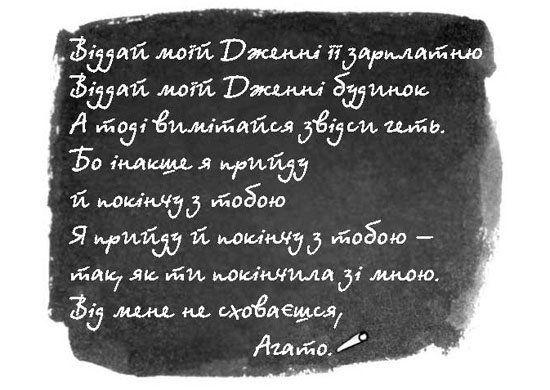 Віддай моїй Дженні її зарплатню
Віддай моїй Дженні будинок
А тоді вимітайся звідси геть.
Бо інакше я прийду
й покінчу з тобою
Я прийду й покінчу з тобою —
так, як ти покінчила зі мною.
Від мене не сховаєшся,
Агато.